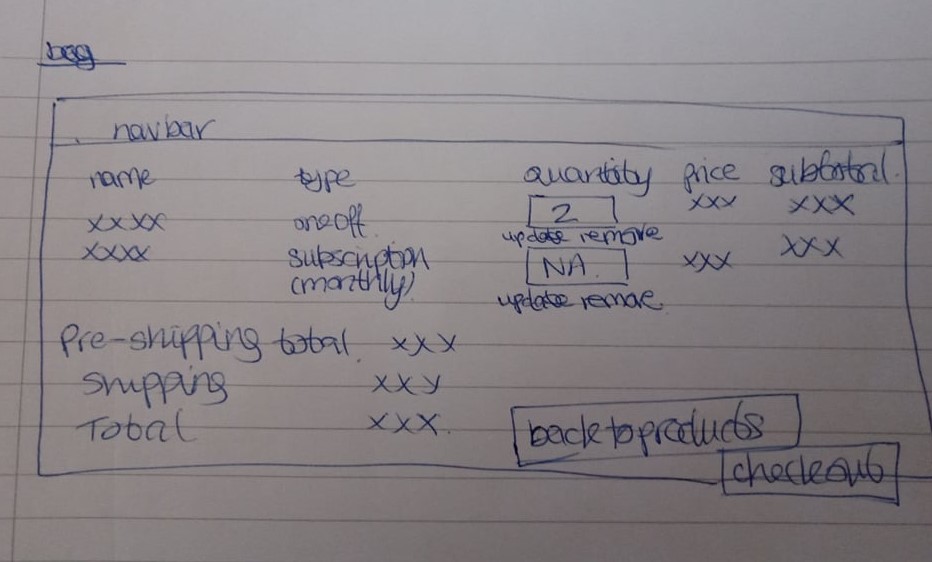 bag
navbar
name type quantity price subtotal.
xxxx one off 2 xxx xxx
update remove
xxxx subscription NA. xxx xxx
(monthly)
update remove
Pre-shipping total. xxx
Shipping xxy
Total xxx.
back to products
checkout